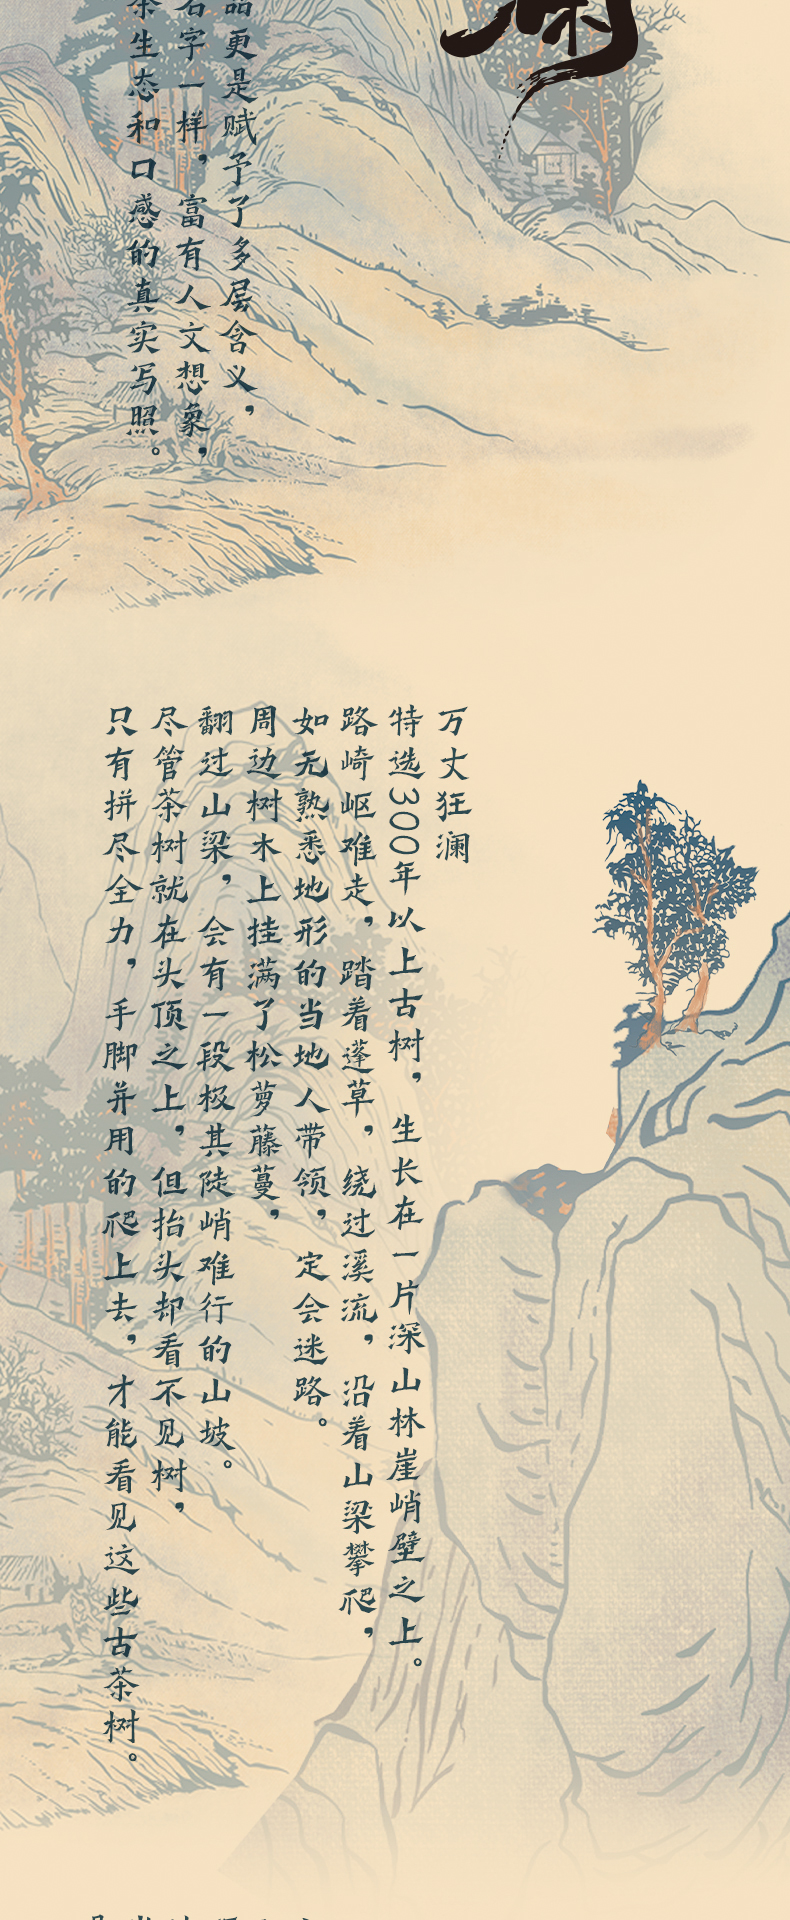 澜
品更是赋予了多层含义，
名字一样，富有人文想象，
茶生态和口感的真实写照。
万丈狂澜
特选300年以上古树，生长在一片深山林崖峭壁之上。
路崎岖难走，踏着蓬草，绕过溪流，沿着山梁攀爬，
如无熟悉地形的当地人带领，定会迷路。
周边树木上挂满了松萝藤蔓，
翻过山梁，会有一段极其陡峭难行的山坡。
尽管茶树就在头顶之上，但抬头却看不见树，
只有拼尽全力，手脚并用的爬上去，才能看见这些古茶树。